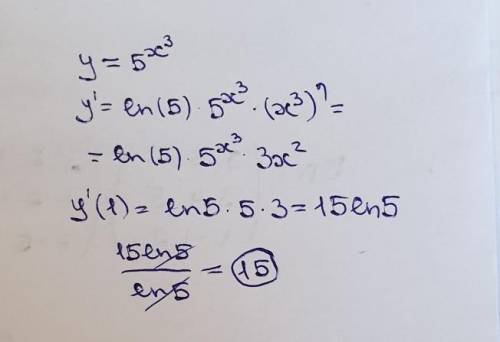 y = 5^{x^3}
y' = ln(5) · 5^{x^3} · (x^3)' =
= ln(5) · 5^{x^3} · 3x^2
y'(1) = ln5 · 5 · 3 = 15ln5
15ln5 / ln5 = 15